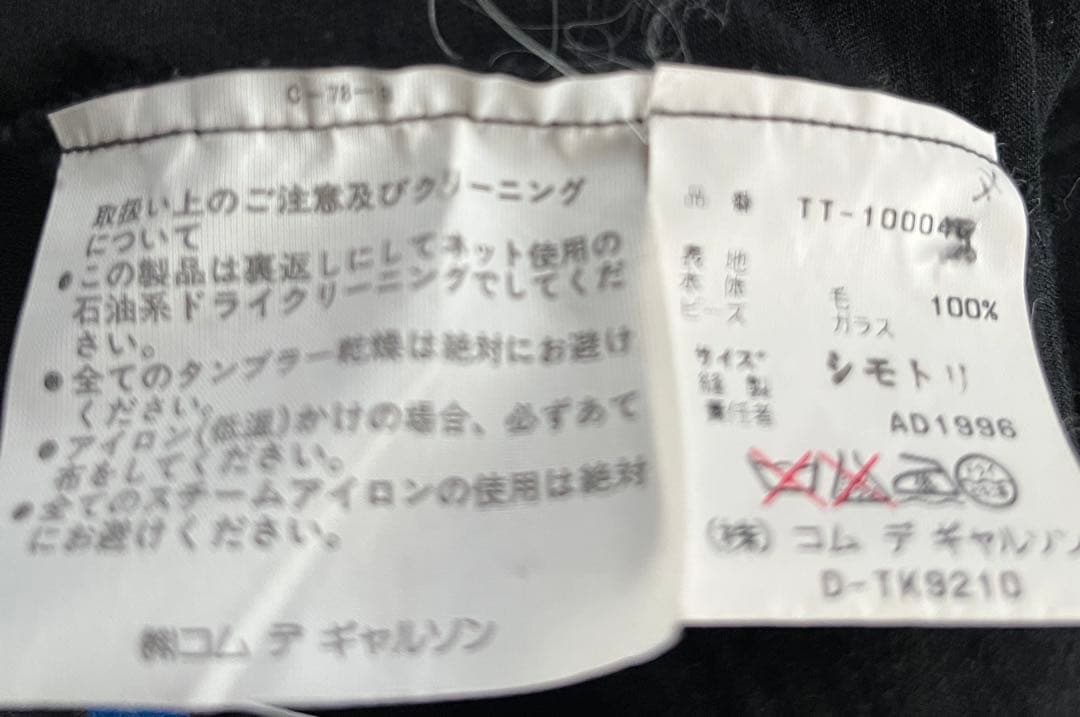 取扱い上のご注意及びクリーニング
について
●この製品は裏返しにしてネット使用の
石油系ドライクリーニングでしてくだ
さい。
●全てのタンブラー乾燥は絶対にお避け
ください。
●アイロン(低温)かけの場合、必ずあて
布をしてください。
●全てのスチームアイロンの使用は絶対
にお避けください。
㈱コム デ ギャルソン
品 番 TT-10004
表 地
本 体 毛 100%
ビーズ ガラス
サイズ シモトリ
縫 製
責任者 AD1996
(株) コム デ ギャルソン
D-TK9210